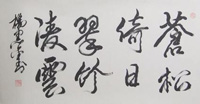 蒼松
倚日
翠竹
凌雲